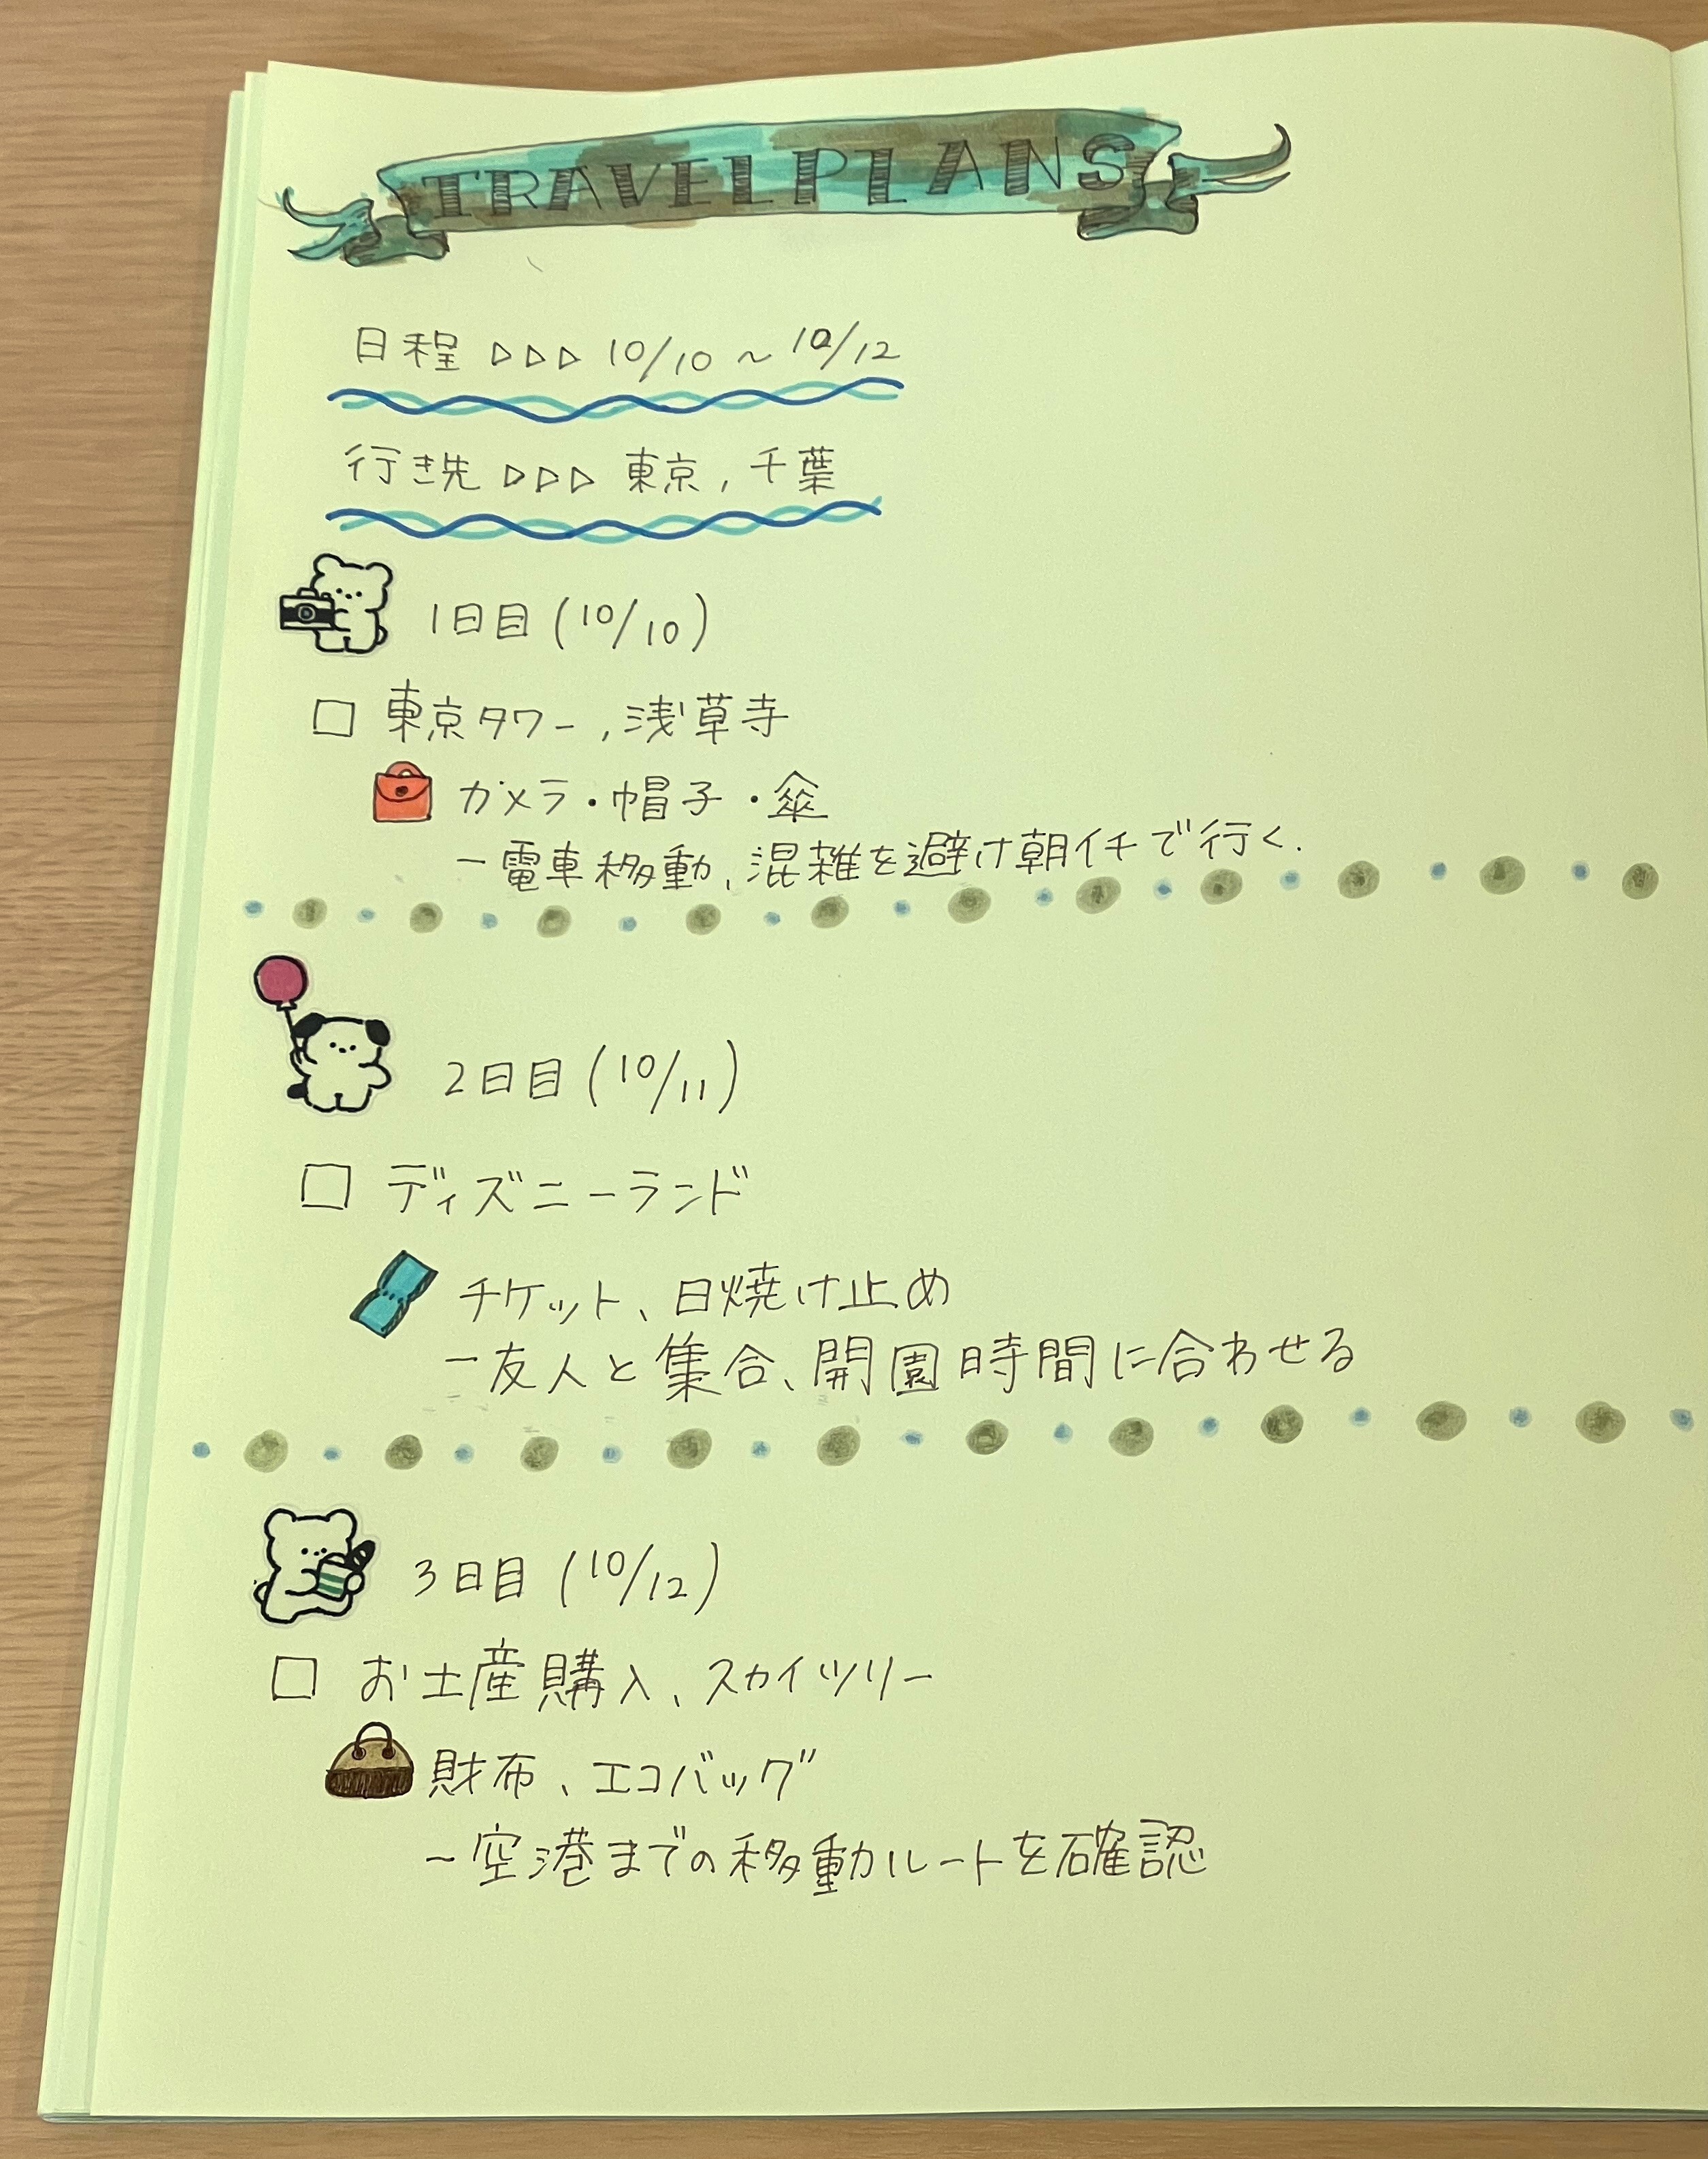 TRAVEL PLANS
日程 ▷▷▷ 10/10 ~ 10/12
行き先 ▷▷▷ 東京, 千葉
1日目 (10/10)
□ 東京タワー, 浅草寺
カメラ・帽子・傘
- 電車移動、混雑を避け朝イチで行く.
2日目 (10/11)
□ ディズニーランド
チケット、日焼け止め
- 友人と集合、開園時間に合わせる
3日目 (10/12)
□ お土産購入、スカイツリー
財布、エコバッグ
- 空港までの移動ルートを確認